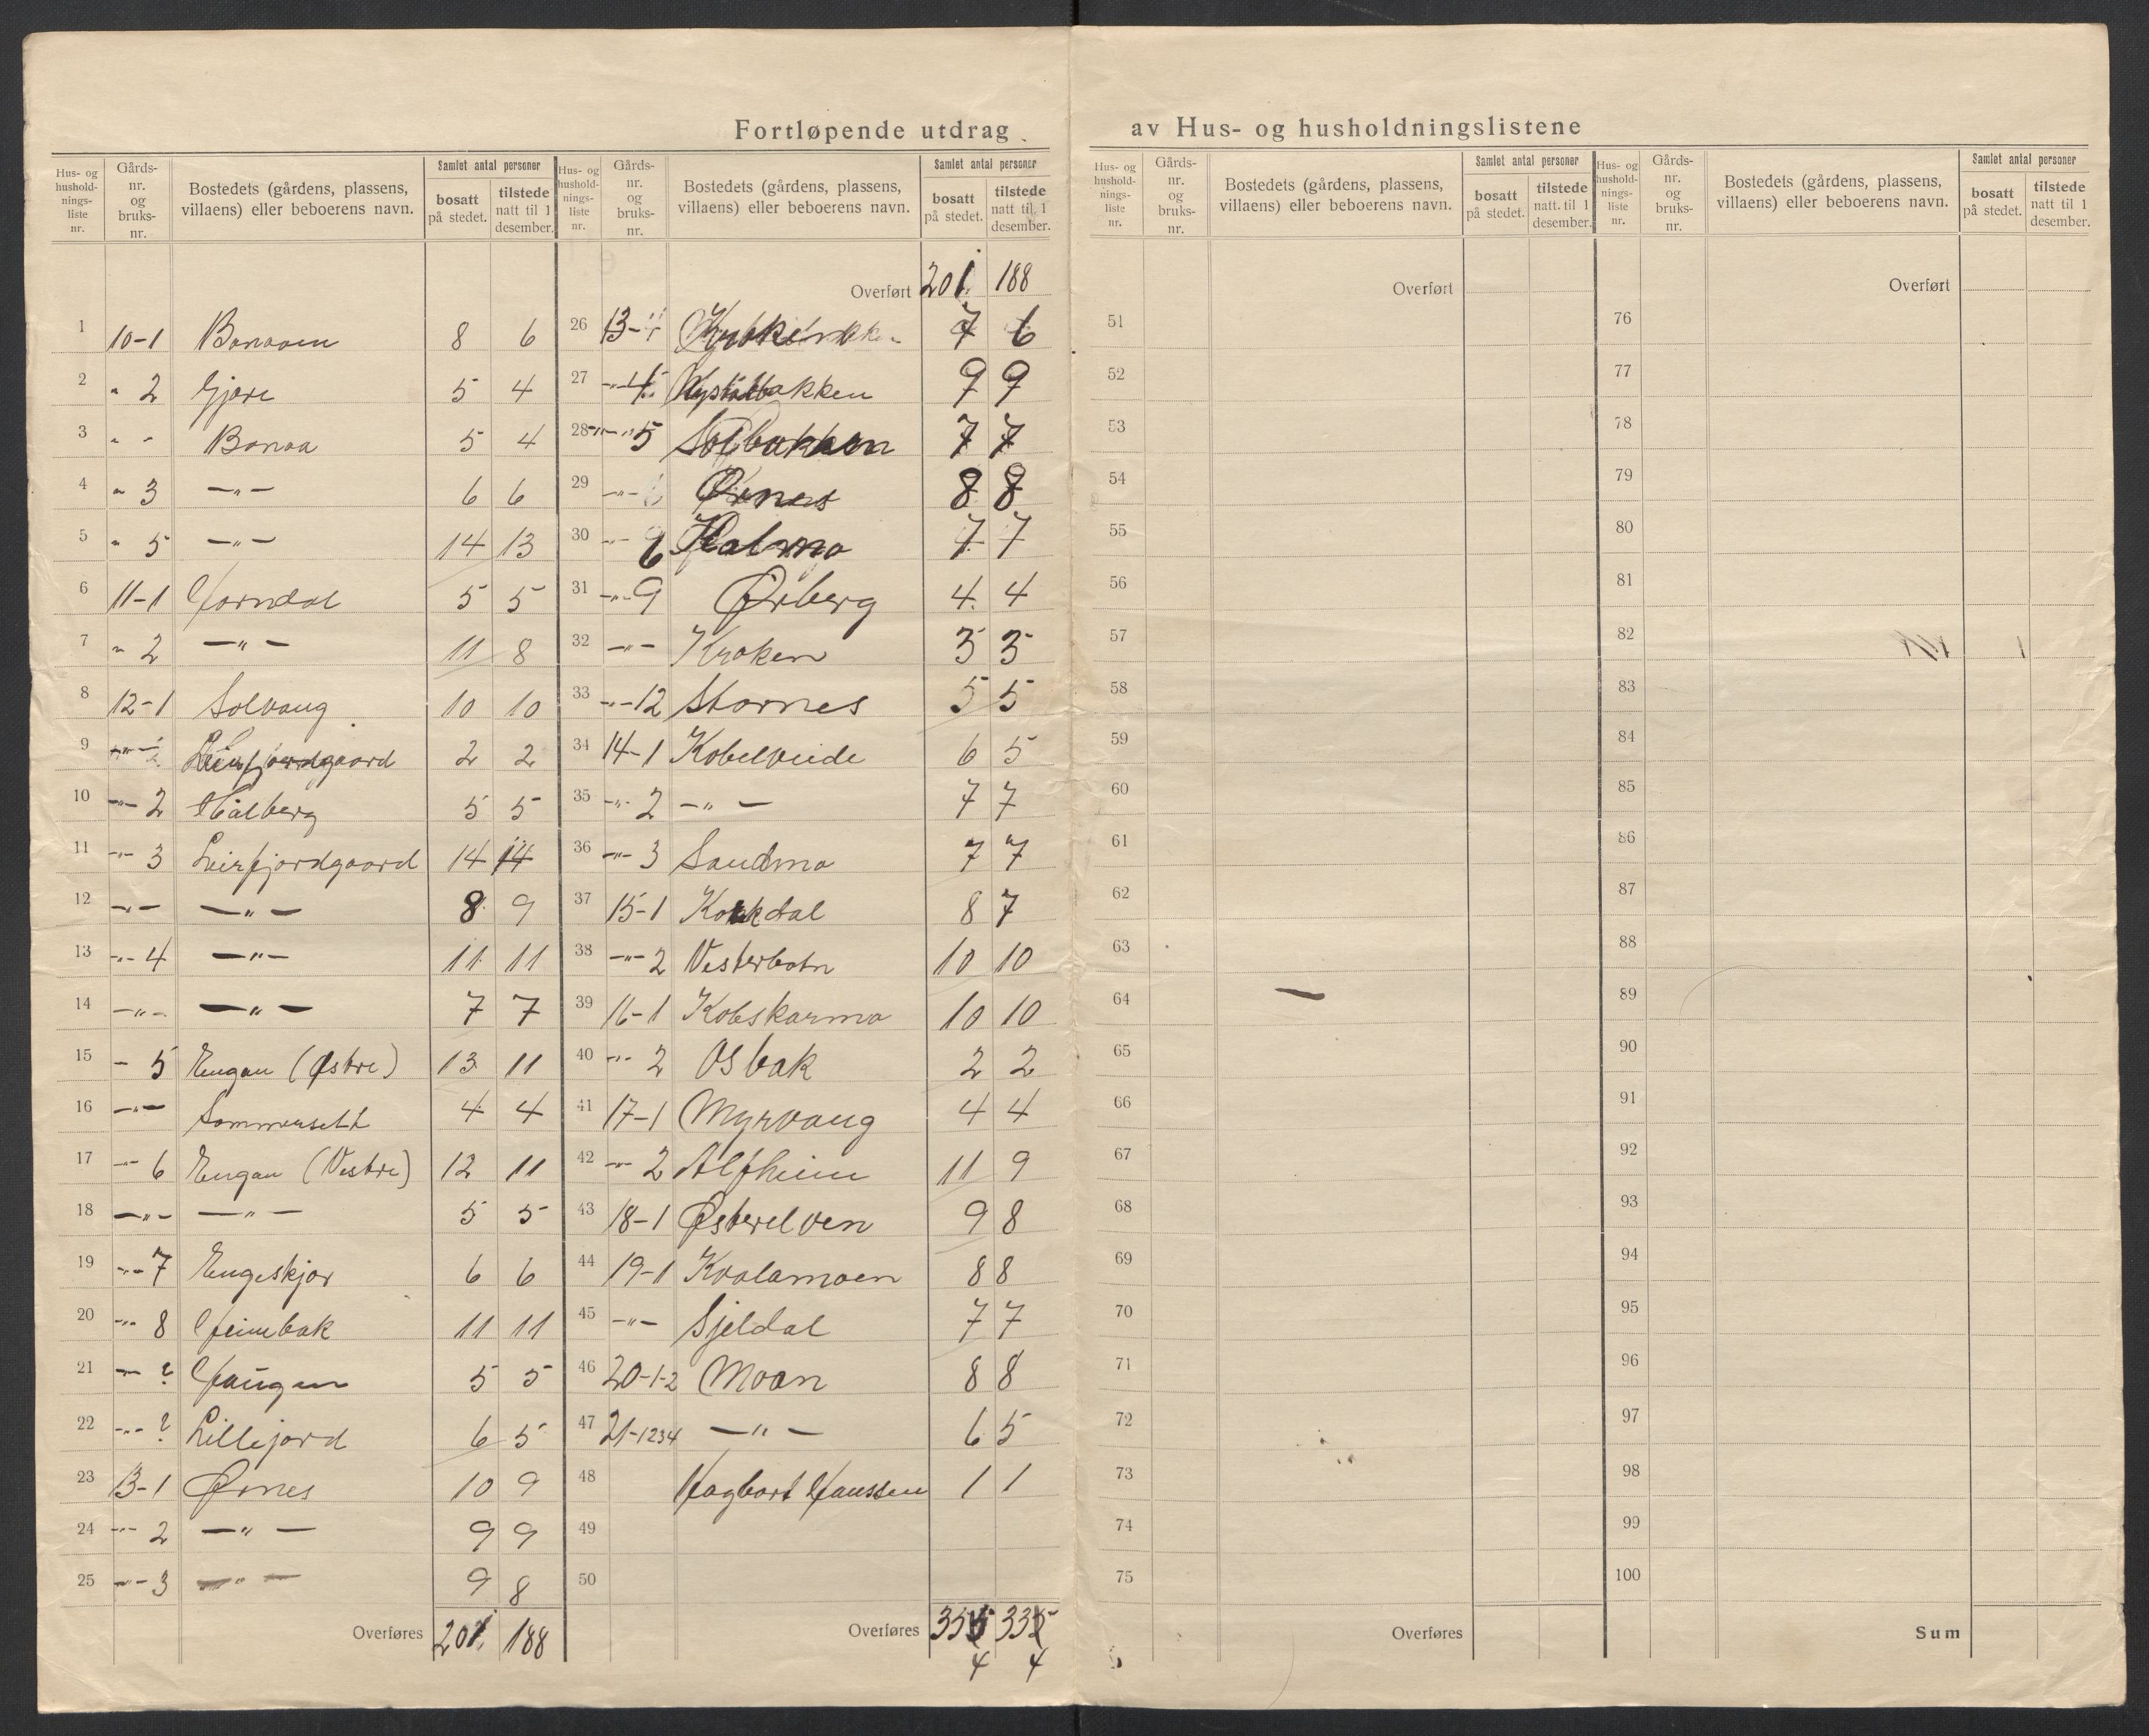 Fortløpende utdrag av Hus- og husholdningslistene
Hus- og hushold- nings- liste nr. Gårds- nr. og bruks- nr. Bostedets (gårdens, plassens, villaens) eller beboerens navn. Samlet antal personer bosatt på stedet. tilstede natt til 1 desember.
1 10-1 Bonaaen 8 6
2 " 2 Gjære 5 4
3 " - Bonaa 5 4
4 " 3 -"- 6 6
5 " 5 -"- 14 13
6 11-1 Horndal 5 5
7 " 2 -"- 11 8
8 12-1 Solvang 10 10
9 Leirfjordgaard 2 2
10 -"- 2 Hålberg 5 5
11 -"- 3 Leirfjordgaard 14 14
12 -"- -"- 8 9
13 -"- 4 -"- 11 11
14 -"- -"- 7 7
15 - 5 Engan (Østre) 13 11
16 -"- Sommersett 4 4
17 -"- 6 Engan (Vestre) 12 11
18 -"- -"- 5 5
19 -"- 7 Engeskjær 6 6
20 -"- 8 Heimbak 11 11
21 -"- ? Haugen 5 5
22 -"- ? Lillejord 6 5
23 13-1 Ørnes 10 9
24 -"- 2 -"- 9 9
25 -"- 3 -"- 9 8
Overføres 201 188
Hus- og hushold- nings- liste nr. Gårds- nr. og bruks- nr. Bostedets (gårdens, plassens, villaens) eller beboerens navn. Samlet antal personer bosatt på stedet. tilstede natt til 1 desember.
Overført 201 188
26 13- 7 6
27 -"- 4 9 9
28 -"- 5 Solbakken 7 7
29 -"- Ørnes 8 8
30 -"- Halmo 7 7
31 -"- 9 Ørberg 4 4
32 -"- Kroken 3 3
33 -"- 12 Stornes 5 5
34 14-1 Kobelveide 6 5
35 -"- 2 -"- 7 7
36 -"- 3 Sandmo 7 7
37 15-1 8 7
38 -"- 2 Vesterbotn 10 10
39 16-1 Kobskarmo 10 10
40 -"- 2 Osbak 2 2
41 17-1 Myrvang 4 4
42 -"- 2 Alfheim 11 9
43 18-1 Østerelven 9 8
44 19-1 Kvalamoen 8 8
45 -"- Sjeldal 7 7
46 20-1-2 Moan 8 8
47 21-1234 -"- 6 5
48 Hagbart Hanssen 1 1
49
50
Overføres 355 335
4 4
Hus- og hushold- nings- liste nr. Gårds- nr. og bruks- nr. Bostedets (gårdens, plassens, villaens) eller beboerens navn. Samlet antal personer bosatt på stedet. tilstede natt. til 1 desember.
Overført
51
52
53
54
55
56
57
58
59
60
61
62
63
64
65
66
67
68
69
70
71
72
73
74
75
Overføres
Hus- og hushold- nings- liste nr. Gårds- nr. og bruks- nr. Bostedets (gårdens, plassens, villaens) eller beboerens navn. Samlet antal personer bosatt på stedet. tilstede natt til 1 desember.
Overført
76
77
78
79
80
81
82
83
84
85
86
87
88
89
90
91
92
93
94
95
96
97
98
99
100
Sum